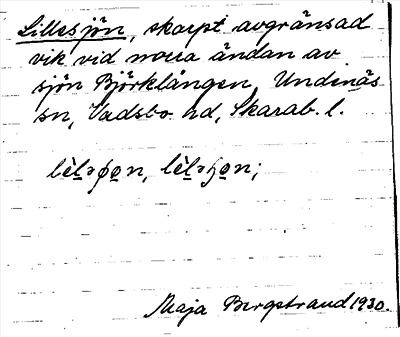 Lillesjön, skarpt avgränsad
vik vid norra ändan av
sjön Björklången, Undenäs
sn, Vadsbo hd, Skarab. l.
Maja Bergstrand 1930.